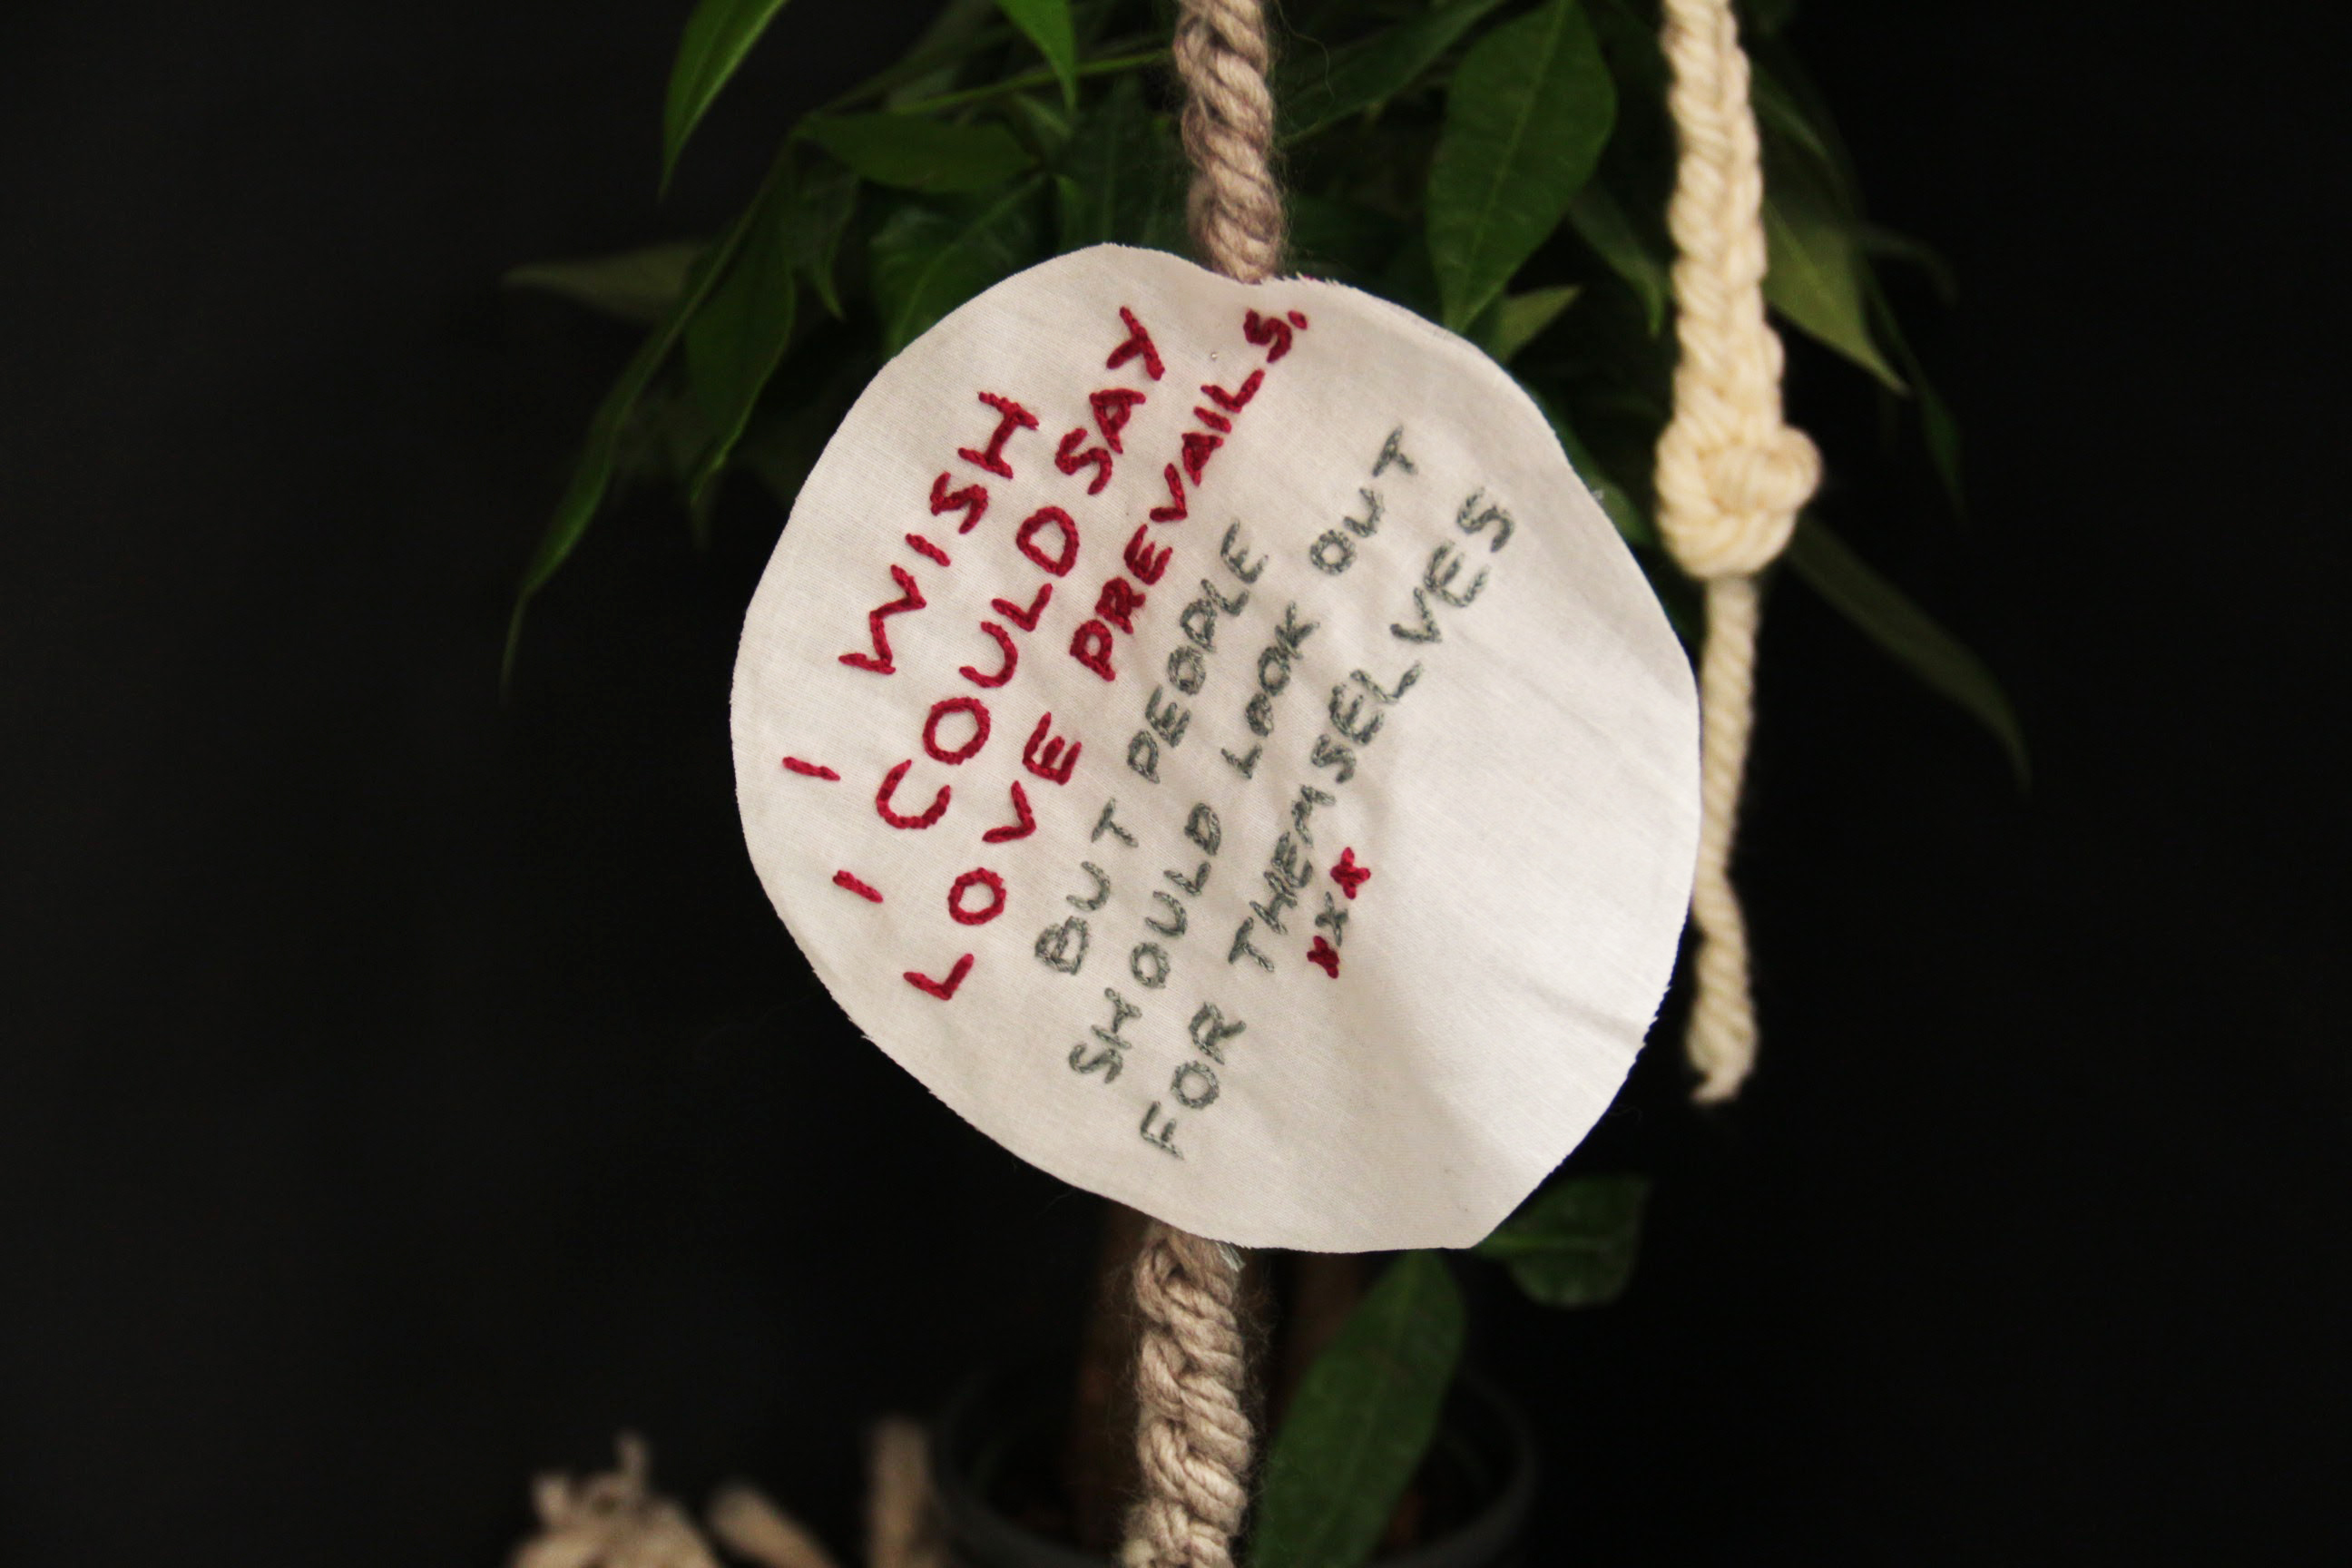 I WISH
I COULD SAY
LOVE PREVAILS.
BUT PEOPLE
SHOULD LOOK OUT
FOR THEMSELVES
xxx